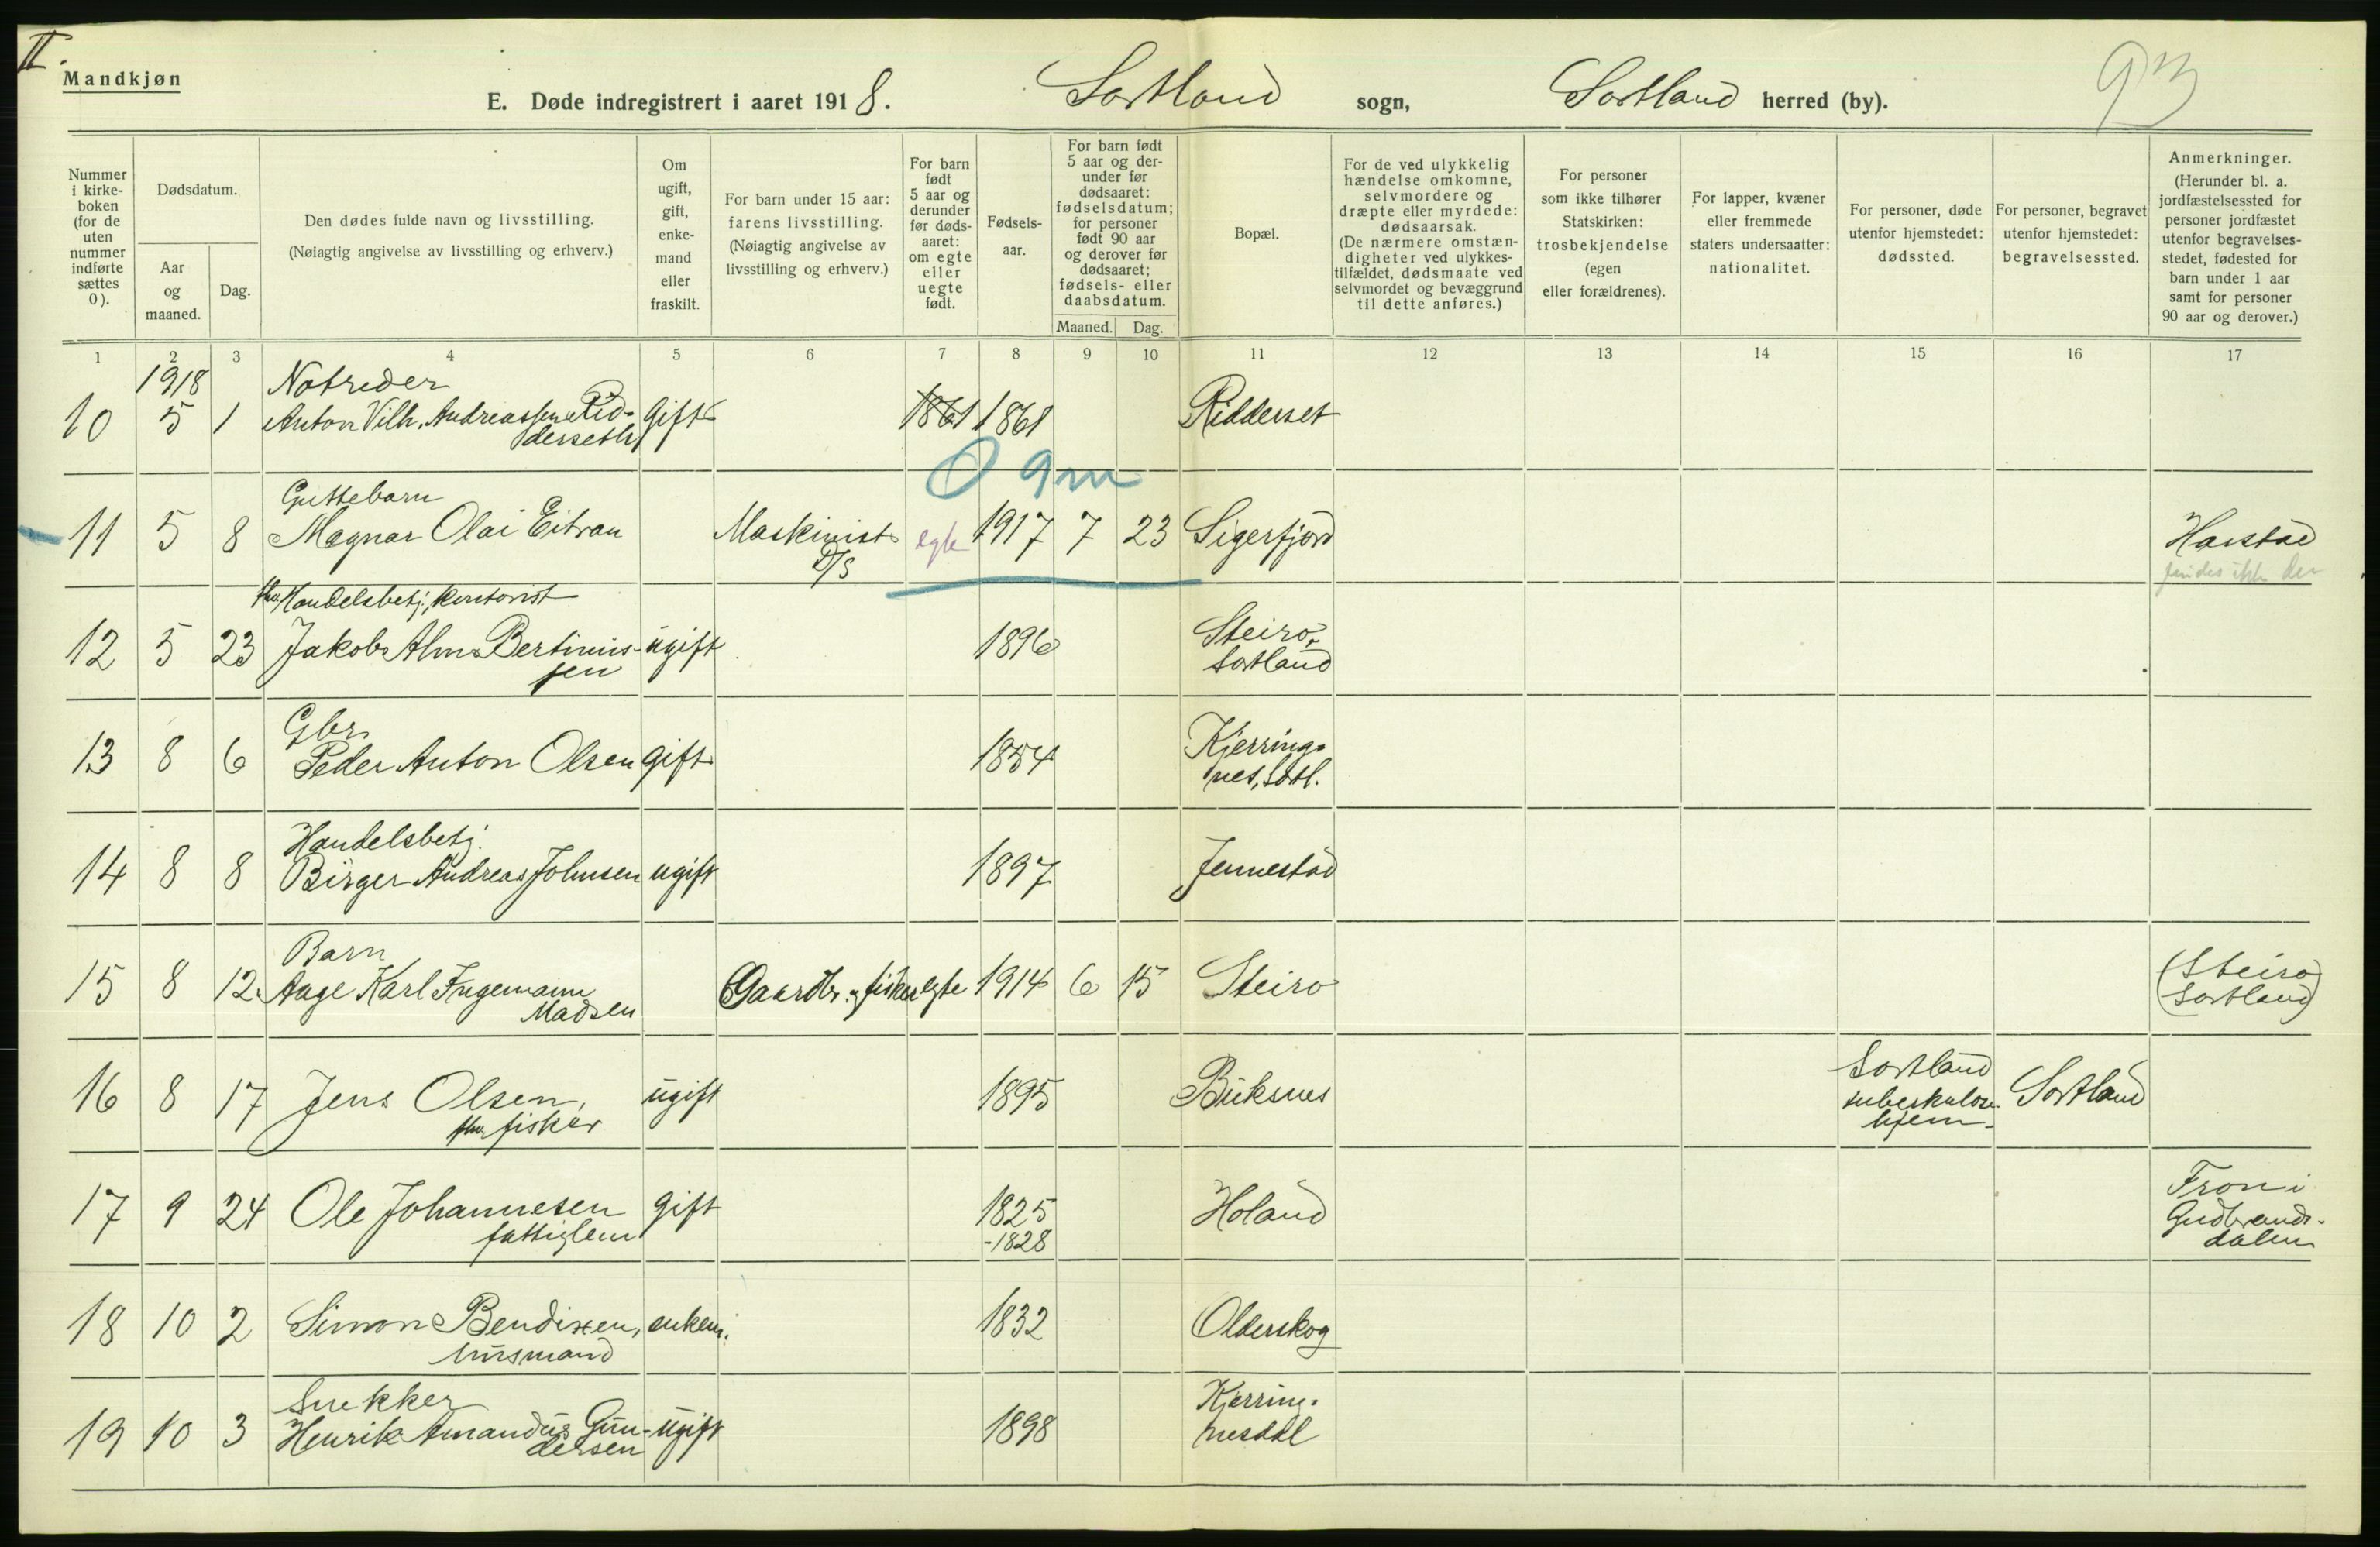 II.
Mandkjøn
E. Døde indregistrert i aaret 1918. Sortland sogn, Sortland herred (by).
93
Nummer i kirke-boken (for de uten nummer indførte sættes 0).
Dødsdatum.
Aar og maaned.
Dag.
Den dødes fulde navn og livsstilling.
(Nøiagtig angivelse av livsstilling og erhverv.)
Om ugift, gift, enke-mand eller fraskilt.
For barn under 15 aar: farens livsstilling.
(Nøiagtig angivelse av livsstilling og erhverv.)
For barn født 5 aar og derunder før døds-aaret: om egte eller uegte født.
Fødsels-aar.
For barn født 5 aar og der-under før dødsaaret: fødselsdatum; for personer født 90 aar og derover før dødsaaret; fødsels- eller daabsdatum.
Maaned. Dag.
Bopæl.
For de ved ulykkelig hændelse omkomne, selvmordere og dræpte eller myrdede: dødsaarsak.
(De nærmere omstæn-digheter ved ulykkes-tilfældet, dødsmaate ved selvmordet og bevæggrund til dette anføres.)
For personer som ikke tilhører Statskirken: trosbekjendelse (egen eller forældrenes).
For lapper, kvæner eller fremmede staters undersaatter: nationalitet.
For personer, døde utenfor hjemstedet: dødssted.
For personer, begravet utenfor hjemstedet: begravelsessted.
Anmerkninger.
(Herunder bl. a. jordfæstelsessted for personer jordfæstet utenfor begravelses-stedet, fødested for barn under 1 aar samt for personer 90 aar og derover.)
1 2 3 4 5 6 7 8 9 10 11 12 13 14 15 16 17
1918 Notreder
10 5 1 Anton Vilh. Andreassen Rid- gift 1861 1861 Ridderset
derseth
0 9 m
Guttebarn
11 5 8 Magnar Olai Eitran Maskinist egte 1917 7 23 Sigerfjord Harstad
D/S findes ikke der
Handelsbetj., kontorist
12 5 23 Jakob Alm Bertinius- ugift 1896 Steiro,
sen Sortland
Gbr.
13 8 6 Peder Anton Olsen gift 1854 Kjerring-
nes, Sortl.
Handelsbetj.
14 8 8 Birger Andreas Johnsen ugift 1897 Jennestad
Barn
15 8 12 Aage Karl Ingemann Gaardbr. og fisker egte 1914 6 15 Steiro (Steiro
Madsen Sortland)
16 8 17 Jens Olsen, ugift 1895 Buksnes Sortland tuberkulose- hjem Sortland
fisker
17 9 24 Ole Johannesen gift 1825 Holand Fron i
fattiglem -1828 Gudbrands-
dalen
18 10 2 Simon Bendixen, enkem. 1832 Olderskog
husmand
Snekker
19 10 3 Henrik Amandus Gun- ugift 1898 Kjerring-
dersen nesdal